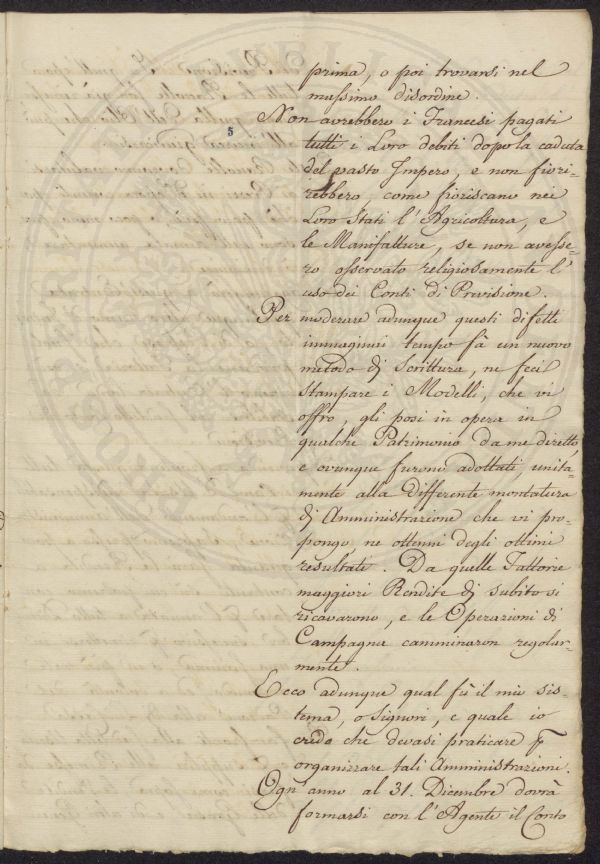 prima, o poi trovarsi nel
massimo disordine.
5
Non avrebbero i Francesi pagati
tutti i Loro debiti dopo la caduta
del vasto Impero, e non fiori-
rebbero, come fioriscano nei
Loro Stati l'Agricoltura, e
le Manifatture, se non avesse-
ro osservato religiosamente l'
uso dei Conti di Previsione.
Per moderare adunque questi difetti
immaginai tempo fà un nuovo
metodo di Scrittura, ne feci
stampare i Modelli, che vi
offro, gli posi in opera in
qualche Patrimonio da me diretto,
e ovunque furono adottati unita-
mente alla differente montatura
di Amministrazione che vi pro-
pongo, ne ottenni degli ottimi
resultati. Da quelle Fattorie
maggiori Rendite di subito si
ricavarono, e le Operazioni di
Campagna camminaron regolar-
mente.
Ecco adunque qual fù il mio sis-
tema, o Signori, e quale io
credo che devasi praticare p
organizzare tali Amministrazioni.
Ogn'anno al 31. Dicembre dovrà
formarsi con l'Agente il Conto